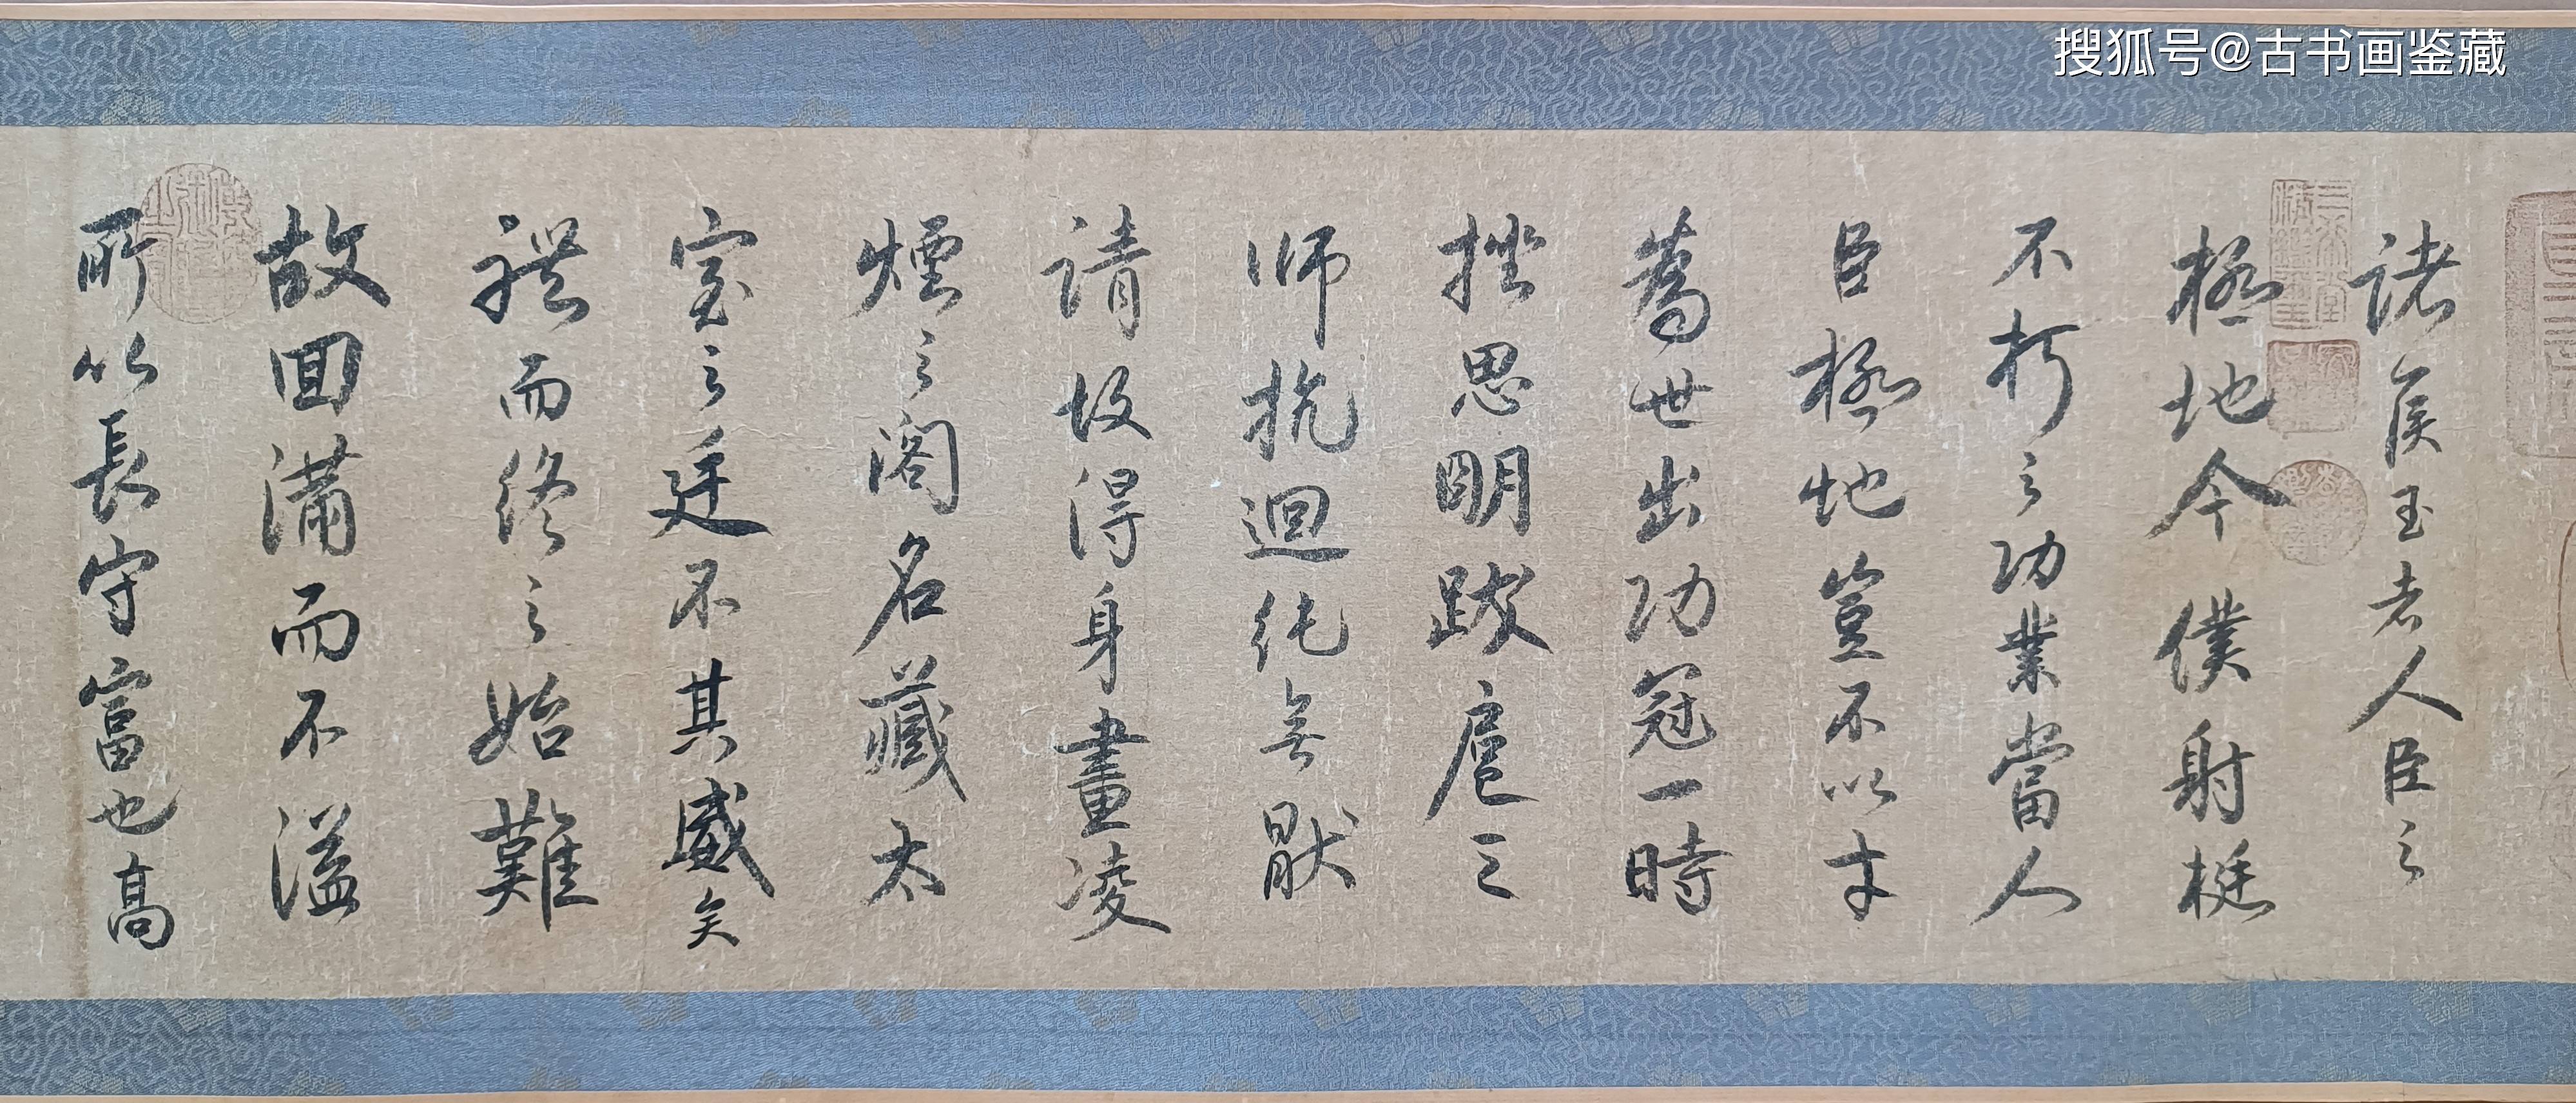 搜狐号@古书画鉴藏
諸侯王者人臣之
極地今僕射挺
不朽之功業當人
臣極地豈不以才
為世出功冠一時
挫思明跋扈之
師抗迴紇無猒
請故得身畫凌
煙之閣名藏太
室之廷不其盛矣
然而終之始難
故曰滿而不溢
所以長守富也高